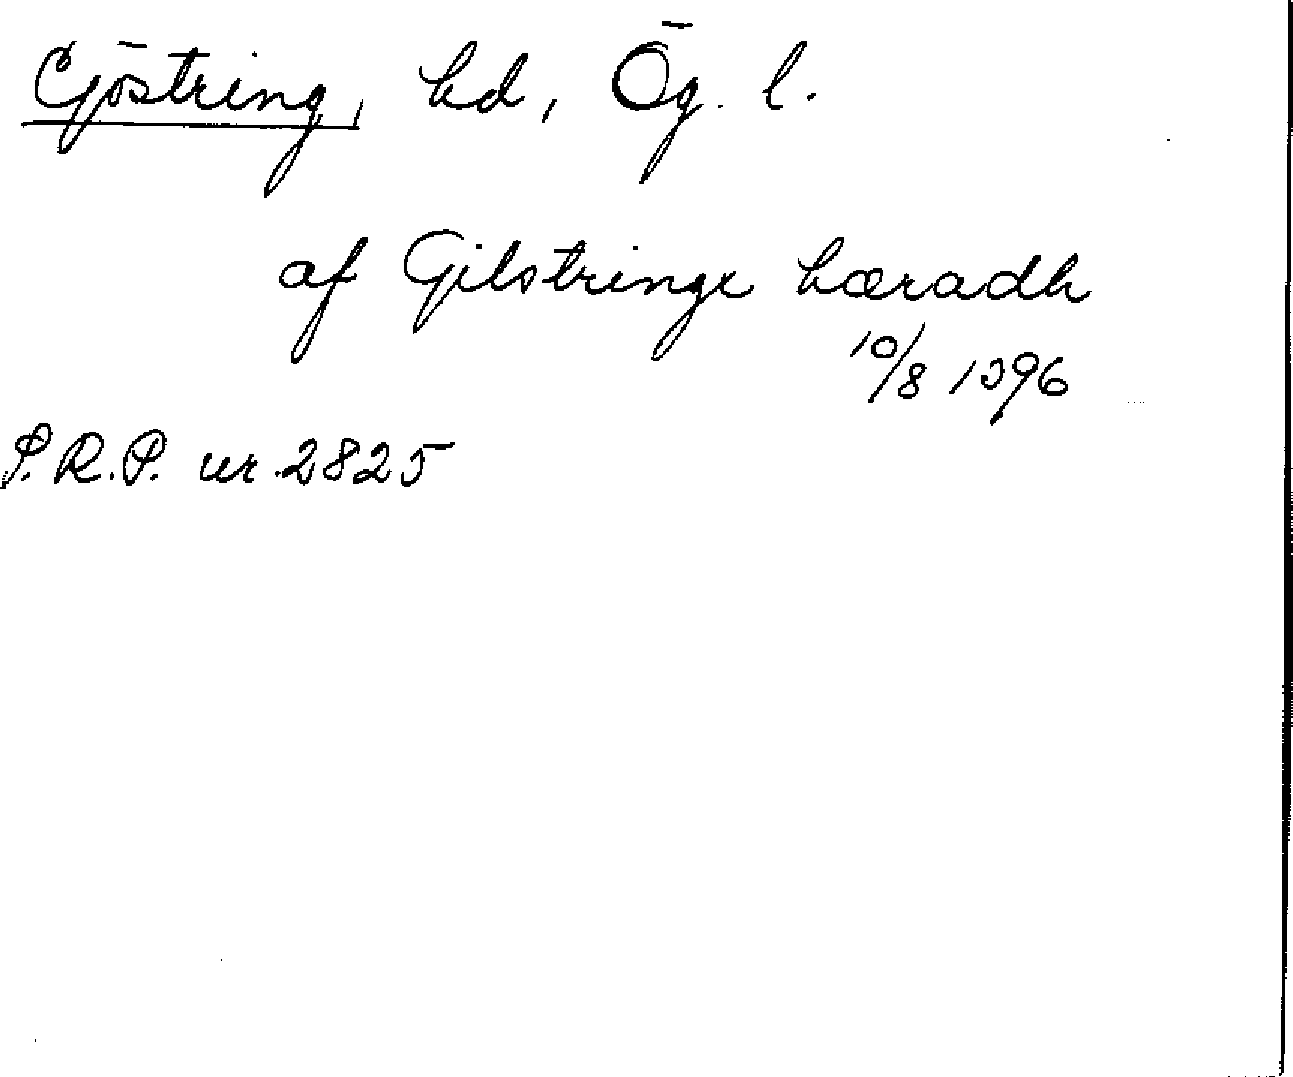 Göstring, hd, Ög. l.
af Gilstringe hæradh
10/8 1396
S.R.P. nr 2825